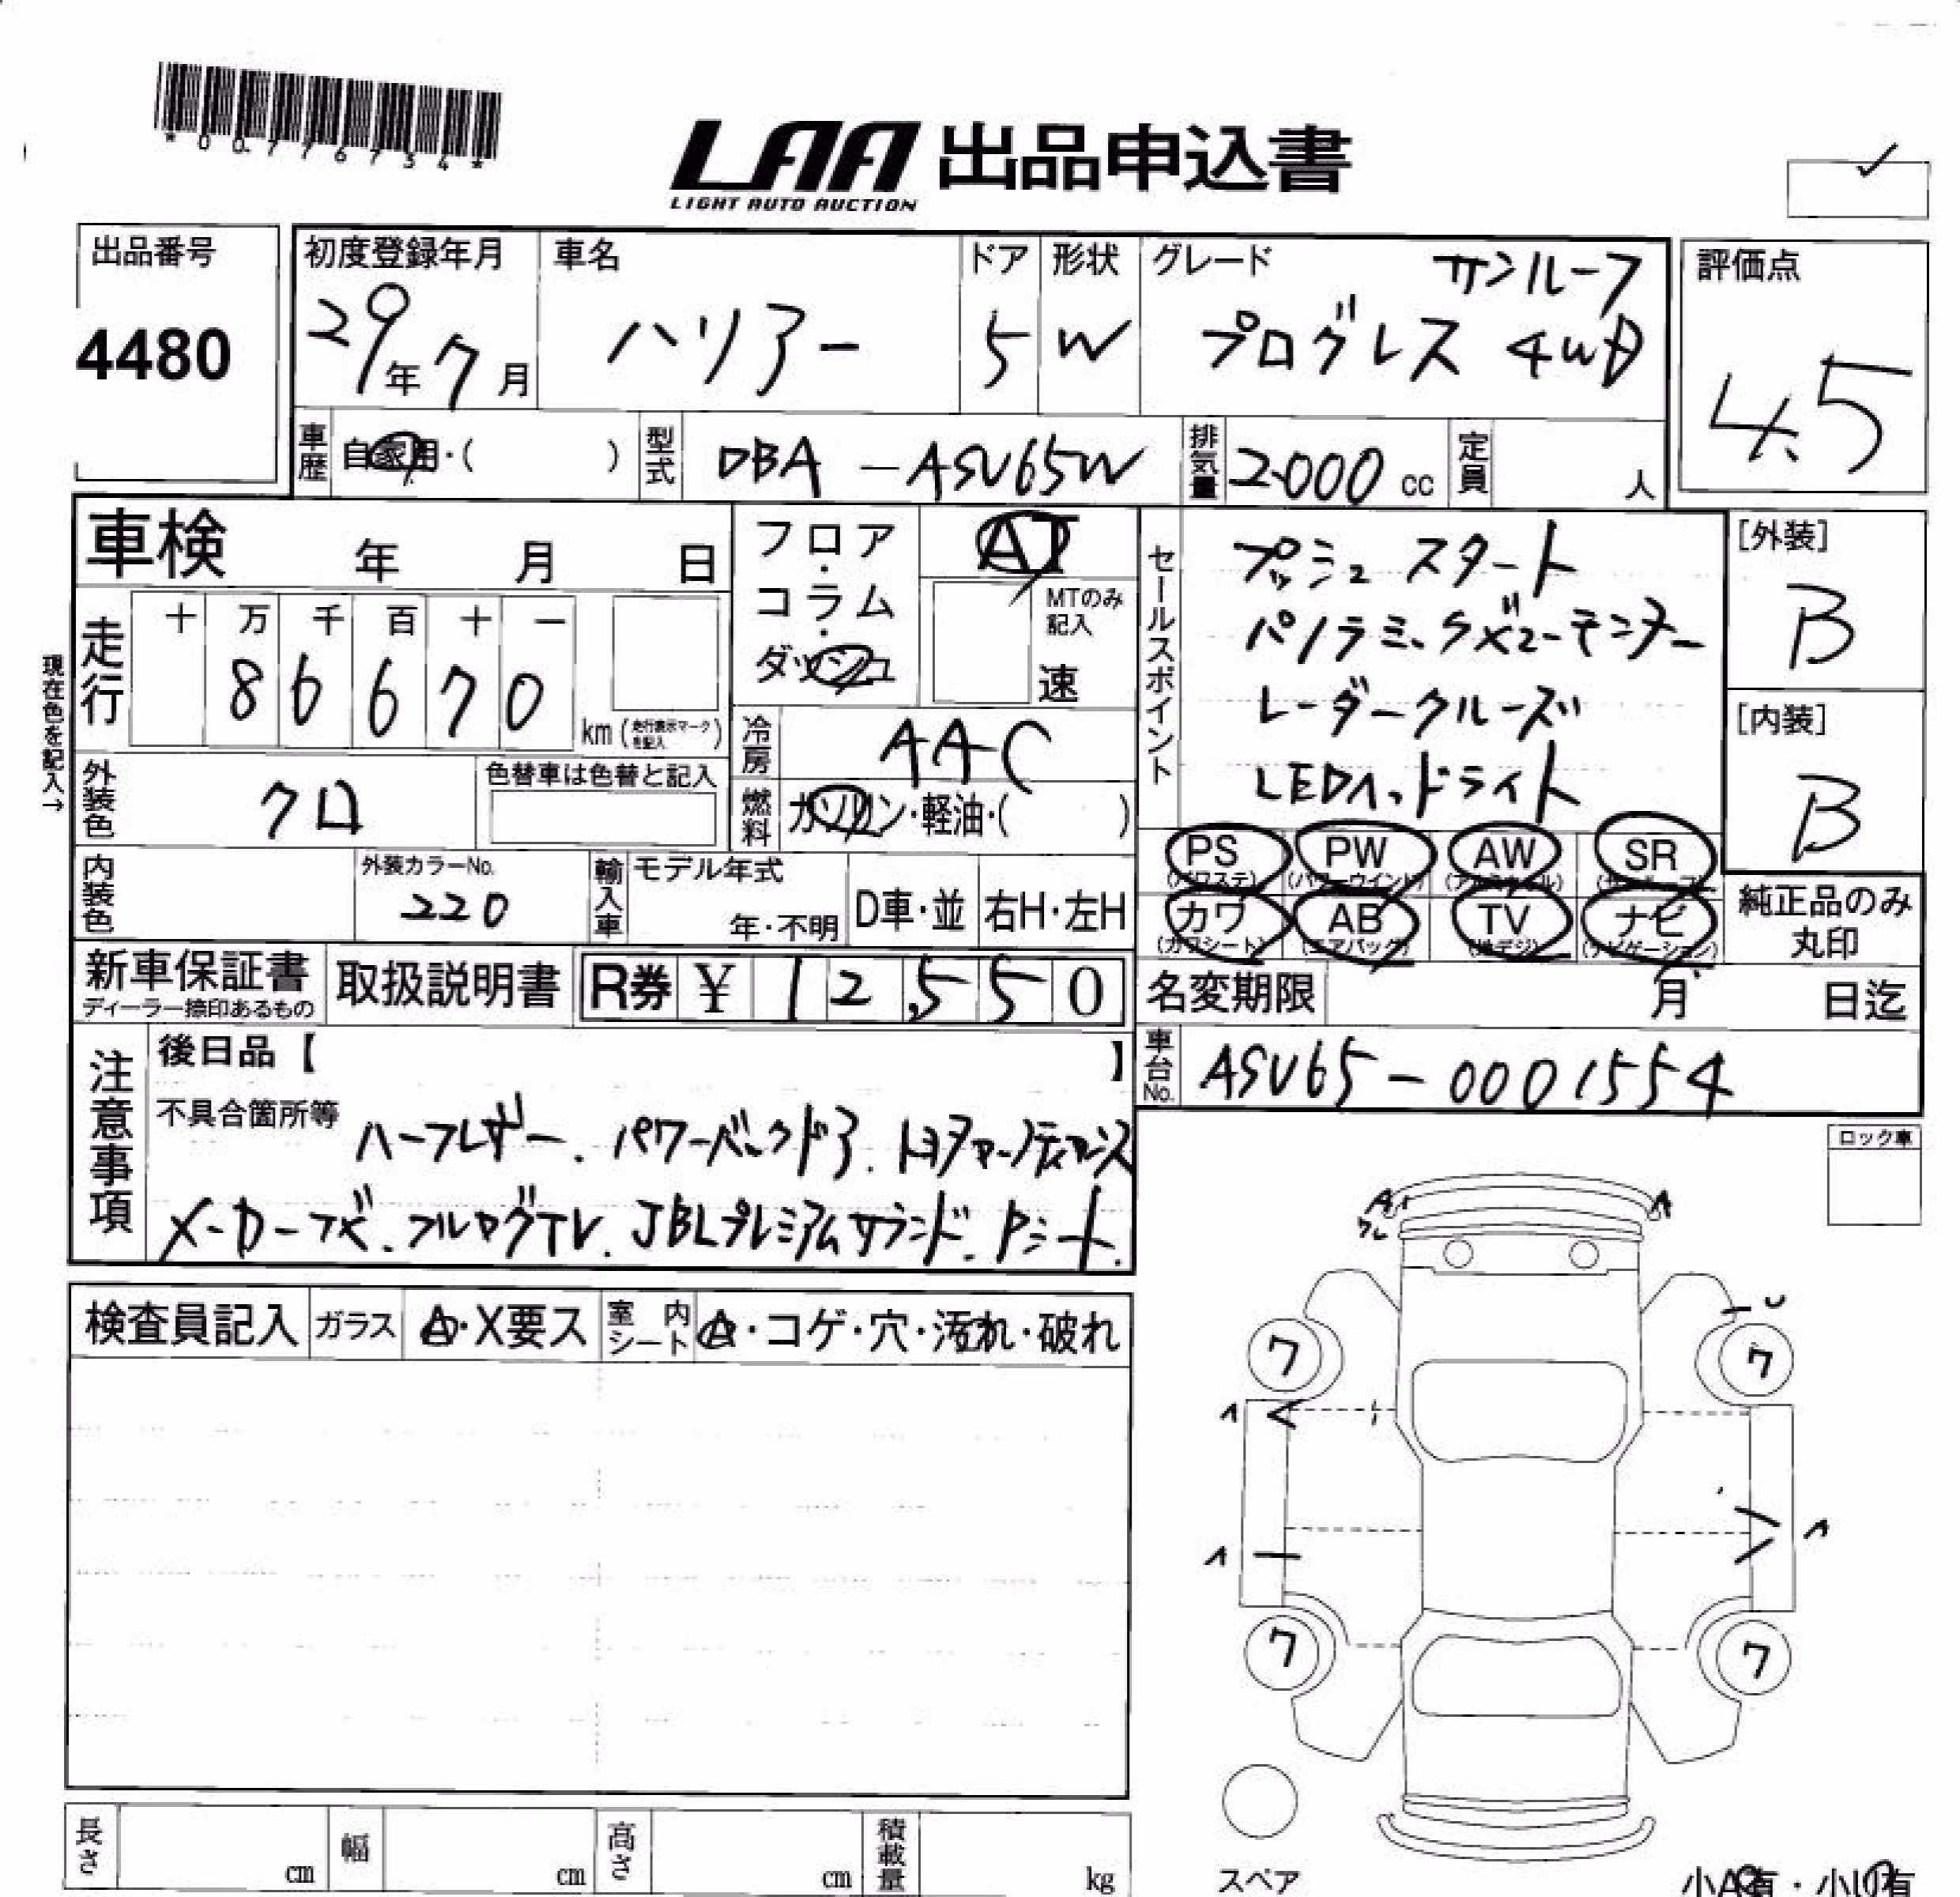 *00776734*
LAA 出品申込書
LIGHT AUTO AUCTION
出品番号
4480
初度登録年月
29年7月
車名
ハリアー
ドア
5
形状
W
グレード
サンルーフ
プログレス 4WD
評価点
4.5
車歴
自家用・( )
型式
DBA-ASU65W
排気量
2000 cc
定員
人
車検 年 月 日
現在色を記入→
走行
十 万 千 百 十 一
8 6 6 7 0
km(走行表示マークを記入)
フロア・コラム・ダッシュ
AT
MTのみ記入
速
冷房
AAC
燃料
ガソリン・軽油・( )
外装色
クロ
色替車は色替と記入
内装色
外装カラーNo.
220
輸入車
モデル年式
年・不明
D車・並
右H・左H
セールスポイント
プッシュスタート
パノラミックビューモニター
レーダークルーズ
LEDヘッドライト
[外装]
B
[内装]
B
PS (パワステ)
PW (パワーウインド)
AW
SR
カワ (カワシート)
AB (エアバッグ)
TV (地デジ)
ナビ (ナビゲーション)
純正品のみ丸印
新車保証書
ディーラー捺印あるもの
取扱説明書
R券 ¥ 12,550
名変期限 月 日迄
車台No.
ASU65-0001554
注意事項
後日品【 】
不具合箇所等
ハーフレザー. パワーバックドア.
メーカーナビ. フルセグTV. JBLプレミアムサウンド. Pシート.
ロック車
検査員記入
ガラス
A・X要ス
室内シート
A・コゲ・穴・汚れ・破れ
A
A
ワ
ワ
ワ
ワ
スペア
長さ cm
幅 cm
高さ cm
積載量 kg
小A有・小U有